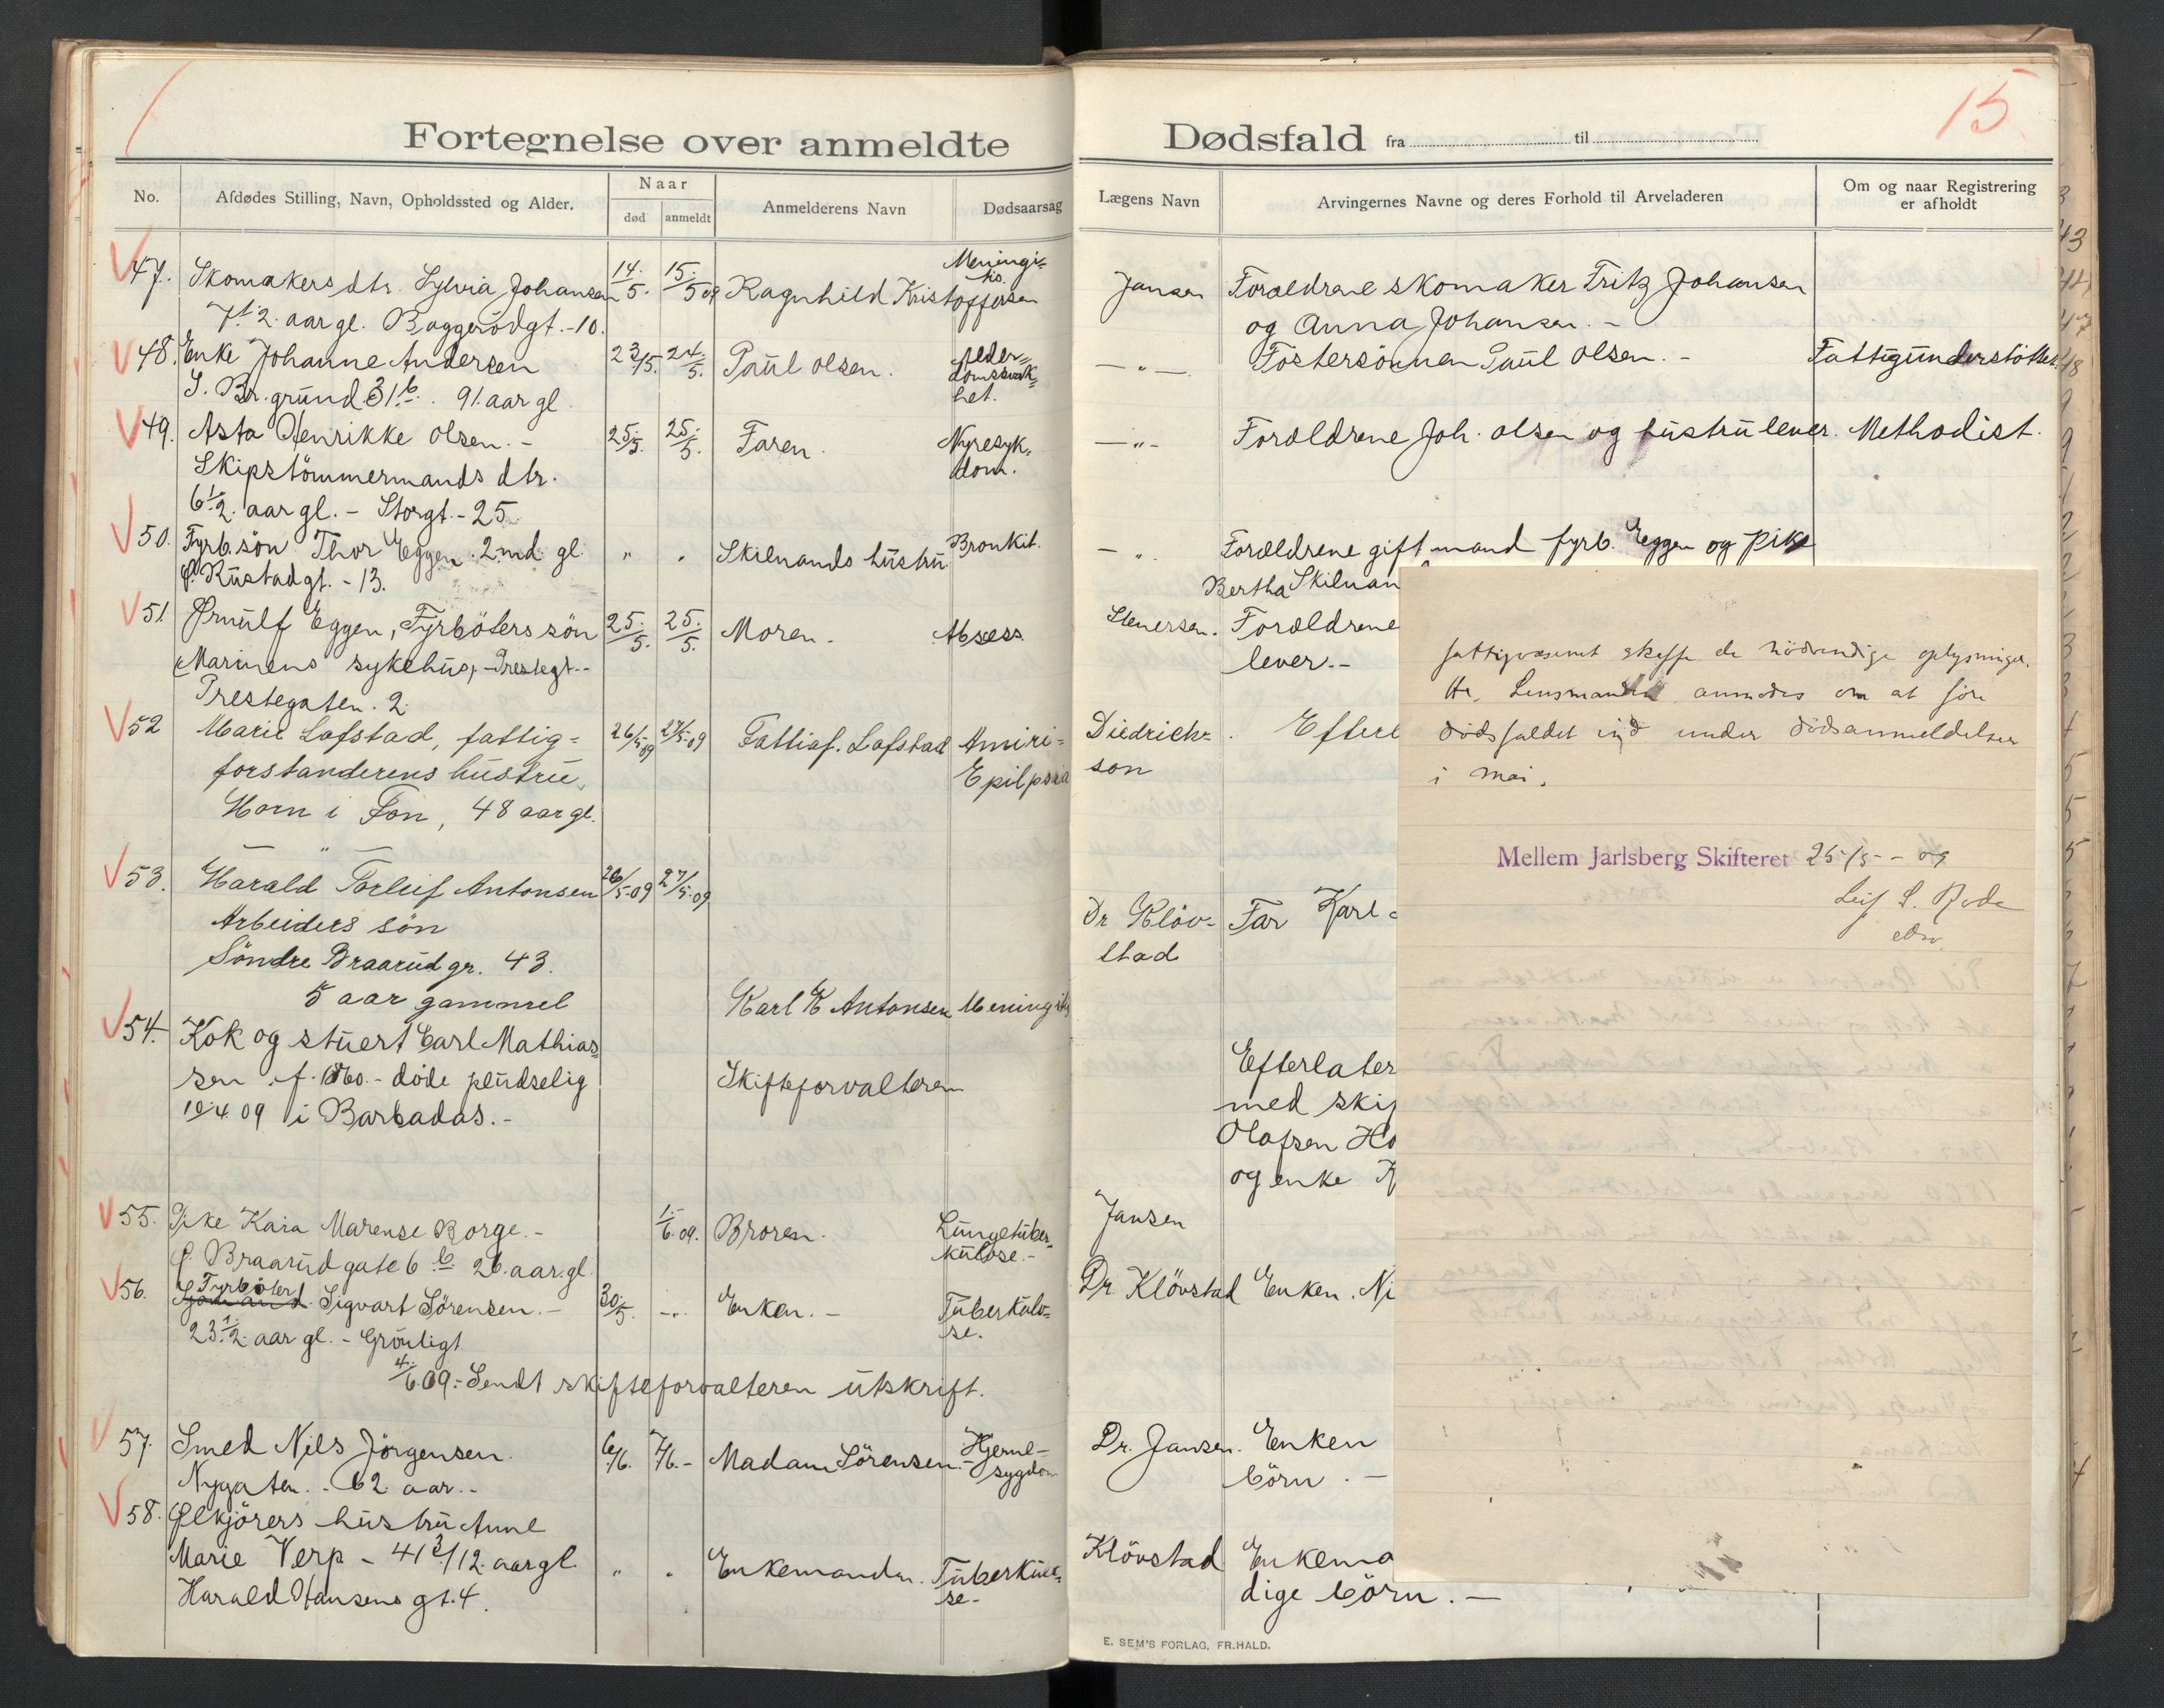 15
Fortegnelse over anmeldte Dødsfald fra til
No.
Afdødes Stilling, Navn, Opholdssted og Alder.
Naar
død
anmeldt
Anmelderens Navn
Dødsaarsag
Lægens Navn
Arvingernes Navne og deres Forhold til Arveladeren
Om og naar Registrering
er afholdt
47. Skomakers dtr. Sylvia Johansen 14/5. 15/5 09 Ragnhild Kristoffersen Meningi-
tis.
7 1/2 aar gl. Baggerödgt.-10.
Jansen Forældrene skomaker Fritz Johansen
og Anna Johansen. -
48. Enke Johanne Andersen 23/5. 24/5. Paul Olsen. Alder-
domssvak-
het.
S. Br. grund 31 b. 91. aar gl.
— " — Föstersönnen Paul Olsen. - Fattigunderstöttet.
49. Asta Henrikke Olsen. - 25/5. 25/5. Faren. Nyresyk-
dom.
Skipstömmermands dtr.
6 1/2 aar gl. - Storgt. - 25
— " - Forældrene Joh. Olsen og hustru lever. Methodist.
50. Fyrb. sön Thor Eggen. 2 md. gl. " " Skilnands hustru Bronkit.
Ø. Rustadgt. - 13.
— " Forældrene gift mand fyrb. Eggen og pike
Bertha Skilnan
51 Ørnulf Eggen, Fyrböters sön 25/5. 25/5. Moren. Absess
Marinens sykehus, - Prestegt. -
Prestegaten. 2.
Stenersen. Forældrene
lever. -
52 Marie Lofstad, fattig= 26/5 09 27/5 09 Fattigf. Lofstad
forstanderens hustru,
Horn i Fon, 48 aar gl.
Epilpsia
Diedrich=
son
Efterl
53. Harald Torleif Antonsen 26/5-09 27/5-09
Arbeiders sön
Söndre Braarud gr. 43.
5 aar gammel
Karl K Antonsen Meningitis
Dr Klöv=
stad
Far Karl
54. Kok og stuert Carl Mathias-
sen f. 1860. - döde pludselig
10/4 09 i Barbadas. -
Skifteforvalteren
Efterlater
med skip
Olafsen Ho
og enke
55. Pike Kaia Marense Borge. - 1/6. 09. Broren. Lungetuber-
kulose. -
Ø. Braarud gate 6 b. 26. aar. gl.
Jansen
56. Fyrböter
Sigvart Sörensen. - 30/5. -"- Enken. - Tuberkulo-
se.
23 1/2 aar gl. - Grönligt.
Dr. Klövstad Enken. Ni
4/6. 09. - Sendt skifteforvalteren utskrift.
57. Smed Nils Jörgensen. 6/6. 7/6. - Madam Sörensen. Hjerne-
sygdom
Nygaten. - 62. aar. -
Dr. Jansen. Enken
börn. -
58. Ølkjörers hustru Anne
Marie Verp - 41 3/12 aar gl. " " Enkemanden. Tuberkulo-
se. -
Harald Hansens gt. 4.
Klövstad Enkema
dige börn. —
fattigvæsenet skaffe de nödvendige oplysninger.
Hr. Lensmanden anmodes om at före
dödsfaldet ind under dödsanmeldelser
i mai.
Mellem Jarlsberg Skifteret 25/5 - 09
Leif S. Rode
E. SEM'S FORLAG, FR.HALD.